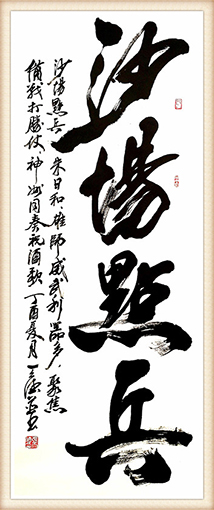 沙場點兵
沙場點兵，朱日和，雄師威武利器多，聚焦
備戰打勝仗，神州同奏祝酒歌 丁酉夏月